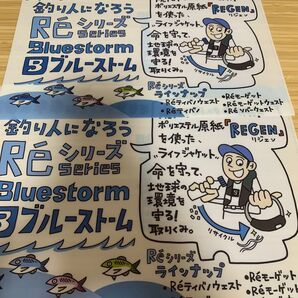 釣り人になろう
Réシリーズ
series
Bluestorm
Bブルーストーム
ポリエステル原紙『REGEN』
を使った リジェン
ライフジャケット。
命を守って、
地球の
環境を
守る!
取りくみ。
リサイクル
Réシリーズ
ラインナップ
•Réモーゲット
•Réティバソウェスト
•Réモーゲットウェスト
釣り人になろう
Réシリーズ
series
Bluestorm
Bブルーストーム
ポリエステル原紙『REGEN』
を使った リジェン
ライフジャケット。
命を守って、
地球の
環境を
守る!
取りくみ。
リサイクル
Réシリーズ
ラインナップ
•Réモーゲット
•Réティバソウェスト